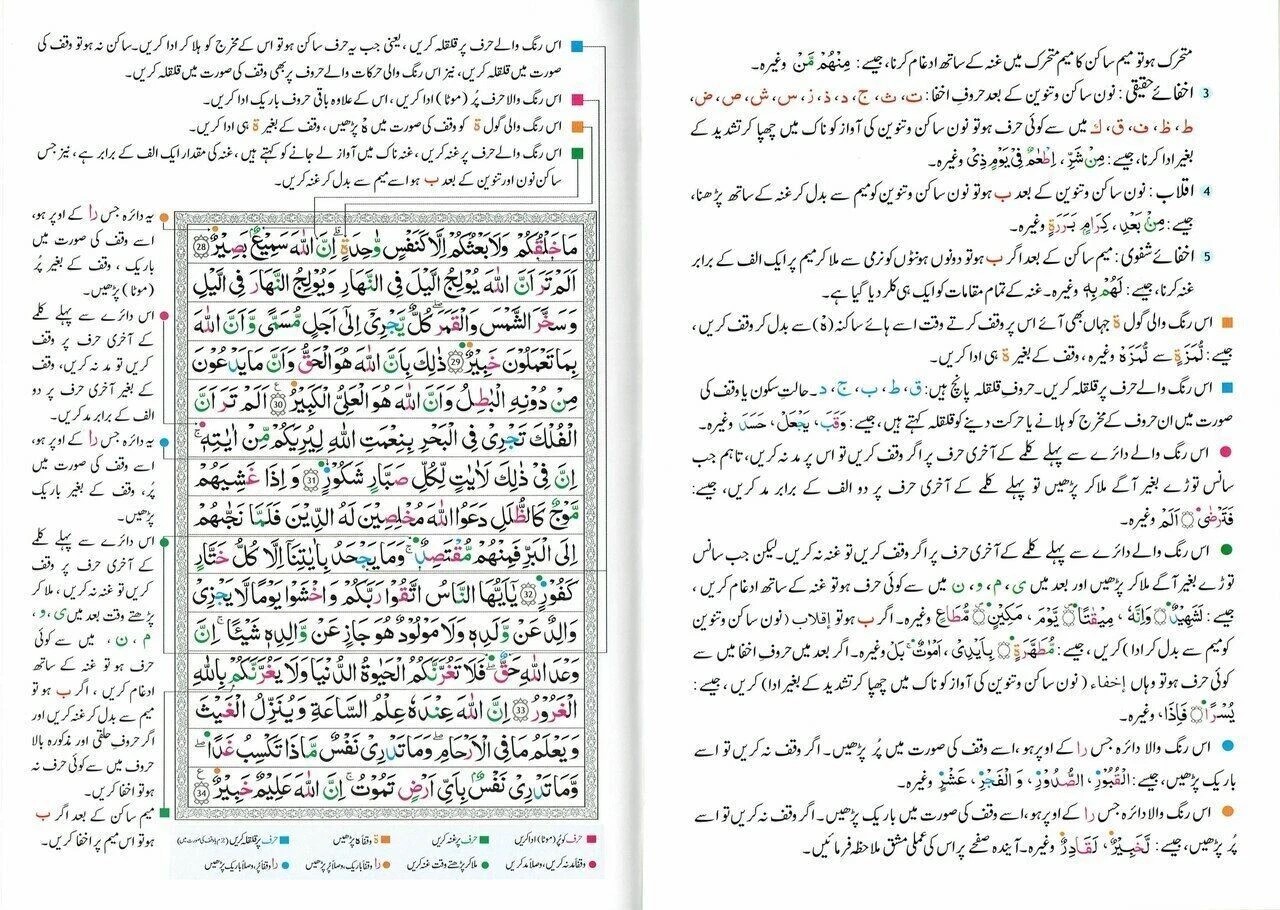 متحرک ہو تو میم ساکن کا میم متحرک میں غنہ کے ساتھ ادغام کرنا، جیسے: مِنْهُمْ مَّنْ وغیرہ۔
3 اخفائے حقیقی: نون ساکن و تنوین کے بعد حروفِ اخفا: ت، ث، ج، د، ذ، ز، س، ش، ص، ض،
ط، ظ، ف، ق، ك میں سے کوئی حرف ہو تو نون ساکن و تنوین کی آواز کو ناک میں چھپا کر تشدید کے
بغیر ادا کرنا، جیسے: مِنْ شَرِّ، اِطْعٰمٌ فِیْ یَوْمٍ ذِیْ وغیرہ۔
4 اقلاب: نون ساکن و تنوین کے بعد ب ہو تو نون ساکن و تنوین کو میم سے بدل کر غنہ کے ساتھ پڑھنا،
جیسے: مِنْۢ بَعْدِ، كِرَامٍۭ بَرَرَةٍ وغیرہ۔
5 اخفائے شفوی: میم ساکن کے بعد اگر ب ہو تو دونوں ہونٹوں کو نرمی سے ملا کر میم پر ایک الف کے برابر
غنہ کرنا، جیسے: لَهُمْ بِهٖ وغیرہ۔ غنہ کے تمام مقامات کو ایک ہی کلر دیا گیا ہے۔
اس رنگ والی گول ة جہاں بھی آئے اس پر وقف کرتے وقت اسے ہائے ساکنہ (هْ) سے بدل کر وقف کریں،
جیسے: لُّمَزَةٍ سے لُّمَزَهْ وغیرہ، وقف کے بغیر ة ہی ادا کریں۔
اس رنگ والے حرف پر قلقلہ کریں۔ حروفِ قلقلہ پانچ ہیں: ق، ط، ب، ج، د۔ حالتِ سکون یا وقف کی
صورت میں ان حروف کے مخرج کو ہلانے یا حرکت دینے کو قلقلہ کہتے ہیں، جیسے: وَقَبَ، يَجْعَلْ، حَسَدَ وغیرہ۔
اس رنگ والے دائرے سے پہلے کلمے کے آخری حرف پر اگر وقف کریں تو اس پر مد نہ کریں، تاہم جب
سانس توڑے بغیر آگے ملا کر پڑھیں تو پہلے کلمے کے آخری حرف پر دو الف کے برابر مد کریں، جیسے:
فَتَرْضٰى ۝ اَلَمْ وغیرہ۔
اس رنگ والے دائرے سے پہلے کلمے کے آخری حرف پر اگر وقف کریں تو غنہ نہ کریں۔ لیکن جب سانس
توڑے بغیر آگے ملا کر پڑھیں اور بعد میں ی، م، و، ن میں سے کوئی حرف ہو تو غنہ کے ساتھ ادغام کریں،
جیسے: لَشَهِيْدٌ ۝ وَاِنَّهٗ، مِيْقَاتًا ۝ يَّوْمَ، مَكِيْنٍ ۝ مُّطَاعٍ وغیرہ۔ اگر ب ہو تو إقلاب (نون ساکن و تنوین
کو میم سے بدل کر ادا) کریں، جیسے: مُّطَهَّرَةٍ ۝ بِاَيْدِيْ، اَمْوَاتٌ بَلْ وغیرہ۔ اگر بعد میں حروفِ اخفا میں سے
کوئی حرف ہو تو وہاں إخفاء (نون ساکن و تنوین کی آواز کو ناک میں چھپا کر تشدید کے بغیر ادا) کریں، جیسے:
يُسْرًا ۝ فَاِذَا، وغیرہ۔
اس رنگ والا دائرہ جس را کے اوپر ہو، اسے وقف کی صورت میں پُر پڑھیں۔ اگر وقف نہ کریں تو اسے
باریک پڑھیں، جیسے: الْقُبُوْرِ، الصُّدُوْرِ، وَالْفَجْرِ، عَشْرٍ وغیرہ۔
اس رنگ والا دائرہ جس را کے اوپر ہو، اسے وقف کی صورت میں باریک پڑھیں۔ اگر وقف نہ کریں تو اسے
پُر پڑھیں، جیسے: لَّخَبِيْرٌ، لَقَادِرٌ وغیرہ۔ آیندہ صفحے پر اس کی عملی مشق ملاحظہ فرمائیں۔
اس رنگ والے حرف پر قلقلہ کریں، یعنی جب یہ حرف ساکن ہو تو اس کے مخرج کو ہلا کر ادا کریں۔ ساکن نہ ہو تو وقف کی
صورت میں قلقلہ کریں، نیز اس رنگ والی حرکات والے حروف پر بھی وقف کی صورت میں قلقلہ کریں۔
اس رنگ والا حرف پُر (موٹا) ادا کریں، اس کے علاوہ باقی حروف باریک ادا کریں۔
اس رنگ والی گول ة کو وقف کی صورت میں هْ پڑھیں، وقف کے بغیر ة ہی ادا کریں۔
اس رنگ والے حرف پر غنہ کریں، غنہ ناک میں آواز لے جانے کو کہتے ہیں، غنہ کی مقدار ایک الف کے برابر ہے، نیز جس
ساکن نون اور تنوین کے بعد ب ہو اسے میم سے بدل کر غنہ کریں۔
مَا خَلْقُكُمْ وَلَا بَعْثُكُمْ اِلَّا كَنَفْسٍ وَّاحِدَةٍ ۗ اِنَّ اللّٰهَ سَمِيْعٌۢ بَصِيْرٌ 28
اَلَمْ تَرَ اَنَّ اللّٰهَ يُوْلِجُ الَّيْلَ فِى النَّهَارِ وَيُوْلِجُ النَّهَارَ فِى الَّيْلِ
وَسَخَّرَ الشَّمْسَ وَالْقَمَرَ ۖ كُلٌّ يَّجْرِيْٓ اِلٰٓى اَجَلٍ مُّسَمًّى وَّاَنَّ اللّٰهَ
بِمَا تَعْمَلُوْنَ خَبِيْرٌ 29 ذٰلِكَ بِاَنَّ اللّٰهَ هُوَ الْحَقُّ وَاَنَّ مَا يَدْعُوْنَ
مِنْ دُوْنِهِ الْبَاطِلُ وَاَنَّ اللّٰهَ هُوَ الْعَلِيُّ الْكَبِيْرُ 30 اَلَمْ تَرَ اَنَّ
الْفُلْكَ تَجْرِىْ فِى الْبَحْرِ بِنِعْمَتِ اللّٰهِ لِيُرِيَكُمْ مِّنْ اٰيٰتِهٖ ۚ
اِنَّ فِيْ ذٰلِكَ لَاٰيٰتٍ لِّكُلِّ صَبَّارٍ شَكُوْرٍ 31 وَاِذَا غَشِيَهُمْ
مَّوْجٌ كَالظُّلَلِ دَعَوُا اللّٰهَ مُخْلِصِيْنَ لَهُ الدِّيْنَ فَلَمَّا نَجّٰىهُمْ
اِلَى الْبَرِّ فَمِنْهُمْ مُّقْتَصِدٌ ۚ وَمَا يَجْحَدُ بِاٰيٰتِنَآ اِلَّا كُلُّ خَتَّارٍ
كَفُوْرٍ 32 يٰٓاَيُّهَا النَّاسُ اتَّقُوْا رَبَّكُمْ وَاخْشَوْا يَوْمًا لَّا يَجْزِىْ
وَالِدٌ عَنْ وَّلَدِهٖ وَلَا مَوْلُوْدٌ هُوَ جَازٍ عَنْ وَّالِدِهٖ شَيْـًٔا ۚ اِنَّ
وَعْدَ اللّٰهِ حَقٌّ ۖ فَلَا تَغُرَّنَّكُمُ الْحَيٰوةُ الدُّنْيَا وَلَا يَغُرَّنَّكُمْ بِاللّٰهِ
الْغَرُوْرُ 33 اِنَّ اللّٰهَ عِنْدَهٗ عِلْمُ السَّاعَةِ وَيُنَزِّلُ الْغَيْثَ
وَيَعْلَمُ مَا فِى الْاَرْحَامِ ۖ وَمَا تَدْرِىْ نَفْسٌ مَّاذَا تَكْسِبُ غَدًا ۖ
وَّمَا تَدْرِىْ نَفْسٌۢ بِاَيِّ اَرْضٍ تَمُوْتُ ۚ اِنَّ اللّٰهَ عَلِيْمٌ خَبِيْرٌ 34
یہ دائرہ جس را کے اوپر ہو،
اسے وقف کی صورت میں
باریک، وقف کے بغیر پُر
(موٹا) پڑھیں۔
اس دائرے سے پہلے کلمے
کے آخری حرف پر وقف
کریں تو مد نہ کریں، وقف
کے بغیر آخری حرف پر دو
الف کے برابر مد کریں۔
یہ دائرہ جس را کے اوپر ہو،
اسے وقف کی صورت میں
پُر، وقف کے بغیر باریک
پڑھیں۔
اس دائرے سے پہلے کلمے
کے آخری حرف پر وقف
کریں تو غنہ نہ کریں، ملا کر
پڑھتے وقت بعد میں ی، و،
م، ن، میں سے کوئی
حرف ہو تو غنہ کے ساتھ
ادغام کریں، اگر ب ہو تو
میم سے بدل کر غنہ کریں اور
اگر حروفِ حلقی اور مذکورہ بالا
حروف میں سے کوئی حرف نہ
ہو تو اخفا کریں۔
میم ساکن کے بعد اگر ب
ہو تو اس میم پر اخفا کریں۔
حرف کو پُر (موٹا) ادا کریں حرف پر غنہ کریں ة وقفاً ہ پڑھیں حرف پر قلقلہ کریں
وقفاً مد نہ کریں، وصلاً مد کریں ملا کر پڑھتے وقت غنہ کریں را وقفاً باریک، وصلاً پُر پڑھیں را وقفاً پُر، وصلاً باریک پڑھیں